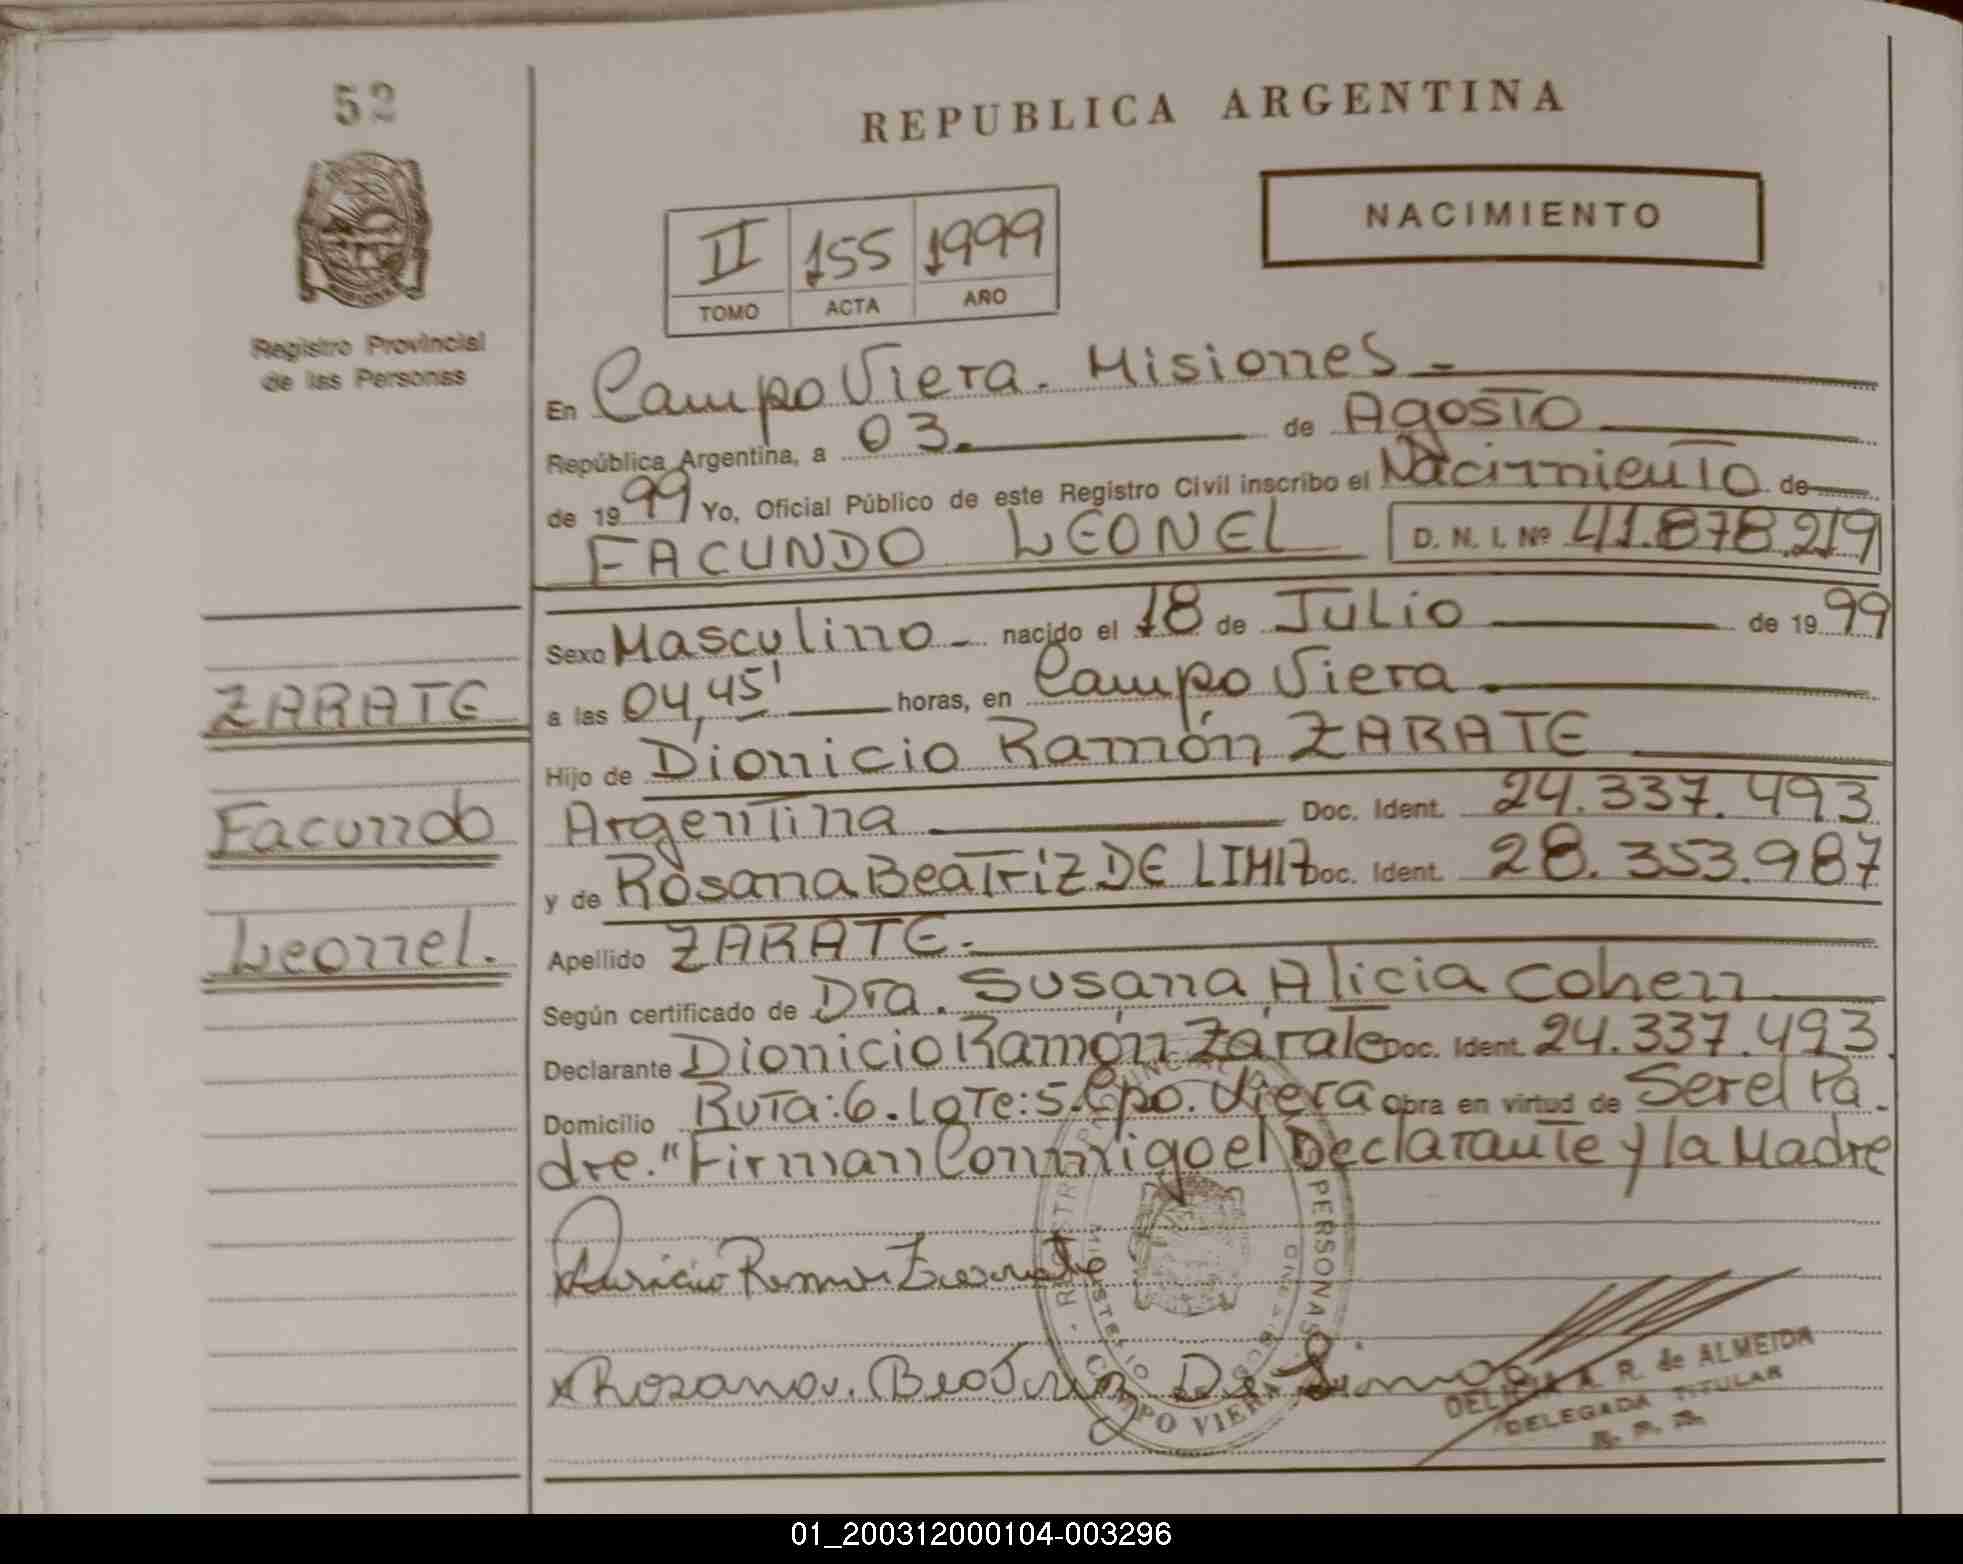 52
REPUBLICA ARGENTINA
NACIMIENTO
II 155 1999
TOMO ACTA AÑO
Registro Provincial
de las Personas
En Campo Viera. Misiones
República Argentina, a 03. de Agosto
de 1999 Yo, Oficial Público de este Registro Civil inscribo el Nacimiento de
FACUNDO LEONEL D. N. I. Nº 41.878.219
Sexo Masculino nacido el 18 de Julio de 1999
a las 04,45' horas, en Campo Viera.
Hijo de Dionicio Ramón ZARATE
Argentina Doc. Ident. 24.337.493
y de Rosana Beatríz DE LIMA Doc. Ident. 28.353.987
Apellido ZARATE.
Según certificado de Dra. Susana Alicia Cohen
Declarante Dionicio Ramón Zárate Doc. Ident. 24.337.493
Domicilio Ruta:6.Lote:5.Cpo. Viera Obra en virtud de Ser el Pa
dre."Firman Conmigo el Declarante y la Madre
ZARATE
Facundo
Leonel.
Rosana. Beatriz De Lima
PERSONAS
MINISTERIO
CAMPO VIERA
A. R. de ALMEIDA
DELEGADA TITULAR
R. P. P.
01_200312000104-003296